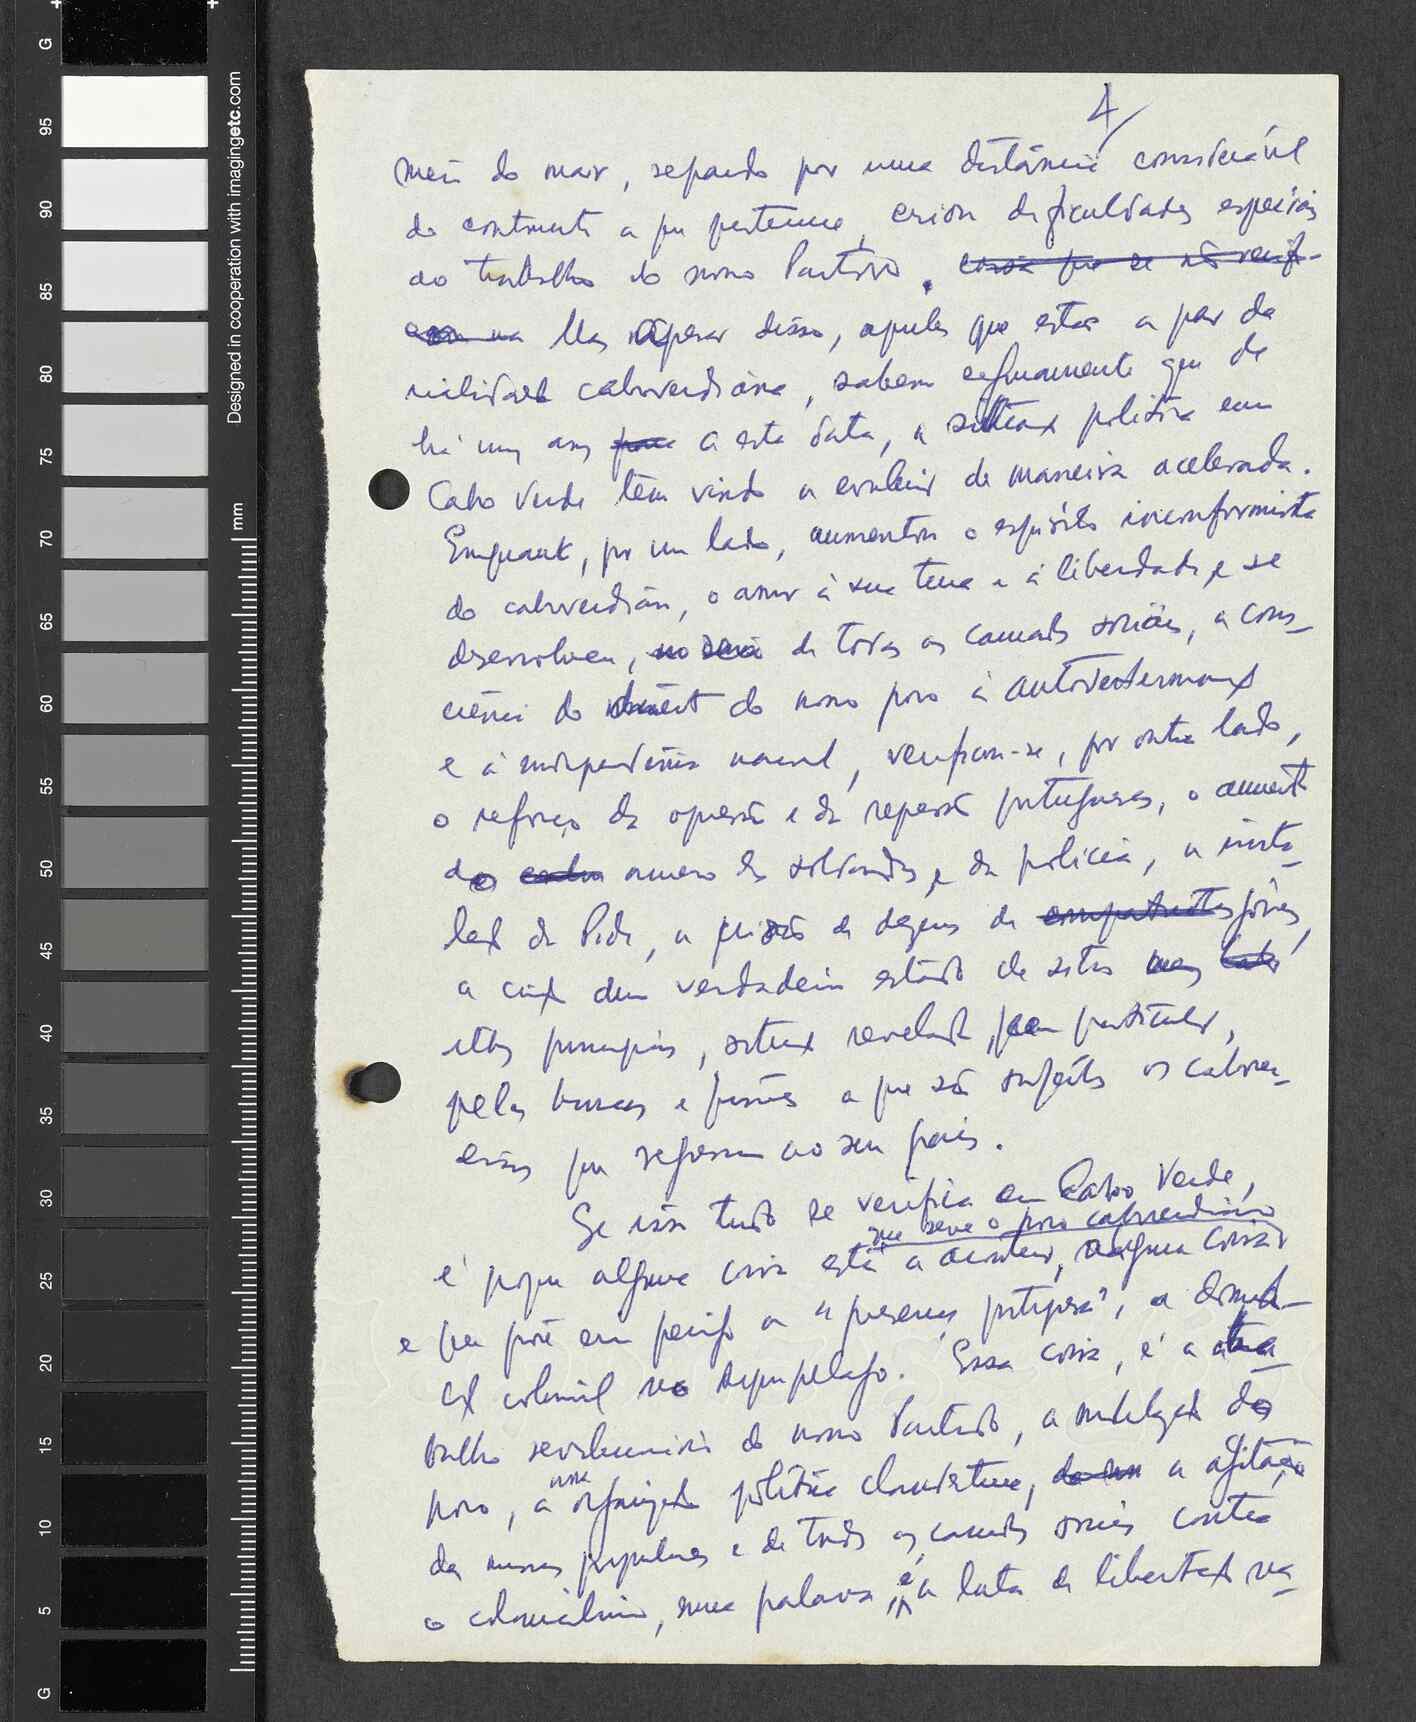 4
meio do mar, separado por uma distância considerável
do continente a que pertence, criou dificuldades especiais
ao trabalho do nosso Partido. coisa que se não verifi-
Mas apesar disso, aqueles que estão a par da
realidade caboverdiana, sabem certamente que de
há uns anos para a esta data, a situação política em
Cabo Verde tem vindo a evoluir de maneira acelerada.
Enquanto, por um lado, aumentou o espírito inconformista
do caboverdiano, o amor à sua terra e à liberdade, e se
desenvolveu, no seio de todas as camadas sociais, a cons-
ciência do direito do nosso povo à autodeterminação
e à independência nacional, verificou-se, por outro lado,
o reforço da opressão e da repressão portuguesas, o aumento
do número de soldados e da polícia, a insta-
lação da Pide, a prisão de dezenas de compatriotas jóvens,
a criação dum verdadeiro estado de sítio nas
ilhas principais, situação revelada, em particular,
pelas buscas e prisões a que são sujeitos os cabover-
eanos que regressam ao seu país.
Se isso tudo se verifica em Cabo Verde,
que serve o povo caboverdiano
é porque alguma coisa está a acontecer, alguma coisa
e que põe em perigo a "presença portuguesa", a domina-
ção colonial no arquipélago. Essa coisa, é a
balho revolucionário do nosso Partido, a mobilização do
nossa
povo, a organização política clandestina, a agitação
das massas populares e de todas as camadas sociais contra
o colonialismo, numa palavra, é a luta de libertação na-
Designed in cooperation with imagingetc.com
mm
G
95
90
85
80
75
70
65
60
55
50
45
40
35
30
25
20
15
10
5
G